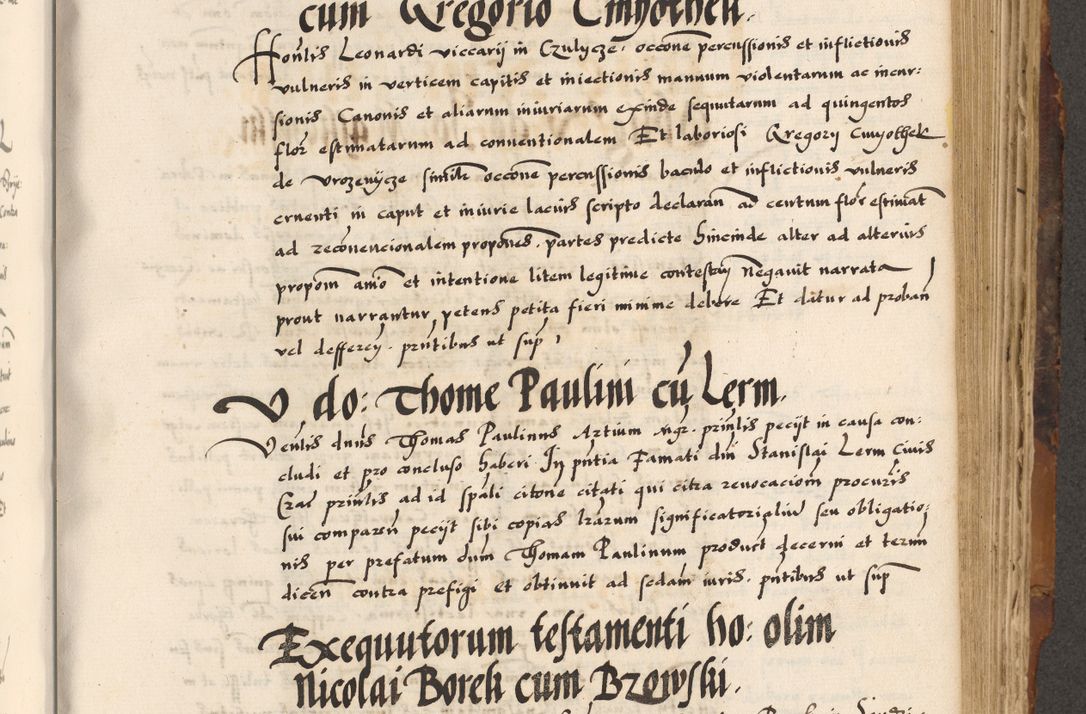 cum Gregorio Cmyothek.
Honlis Leonardi viccarij in Czulycze, occone percussionis et inflictionis
vulneris in verticem capitis et iniectionis manuum violentarum ac incur-
sionis Canonis et aliarum iniuriarum exinde sequutarum ad quingentos
flor estimatarum ad conuentionalem Et laboriosi Gregorij Cmyothek
de Vrozenycze similr occone percussionis baculo et inflictionis vulneris
cruenti in caput et iniurie lacius scripto declaran ad centum flor estimat
ad reconuencionalem propones. partes predicte hincinde alter ad alterius
propom animo et intentione litem legitime contestan Negauit narrata
prout narrantur petens petita fieri minime debere Et datur ad proban
vel defferen. pntibus ut sup
V do: Thome Paulini cu Lerm.
Venlis dnus Thomas Paulinus Artium mgr. prinlis pecijt in causa con:
cludi et pro concluso haberi In pntia Famati dni Stanislai Lerm Ciuis
Crac prinlis ad id spali citone citati qui citra reuocaciom procuris
sui comparen pecijt sibi copias lrarum significatorialiu seu obligatio:
nis per prefatum dnm Thomam Paulinum product decerni et terum
dicen contra prefigi et obtinuit ad sedam iuris. pntibus ut sup
Exequutorum testamenti ho: olim
Nicolai Borek cum Brzowski.